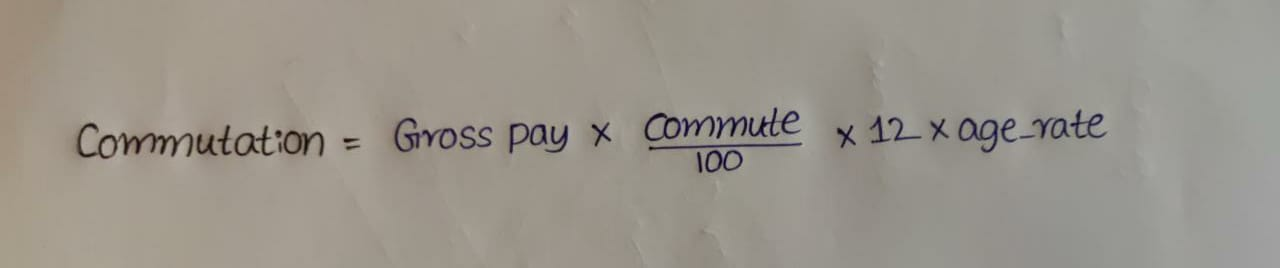 Commutation = Gross pay × commute/100 × 12 × age_rate